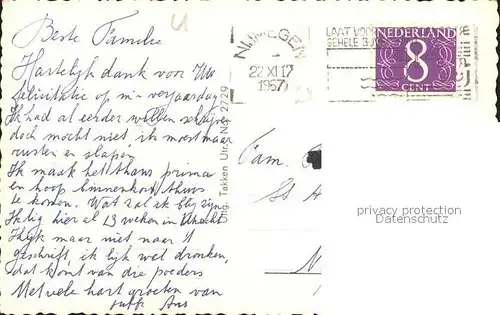 Beste Familie
Hartelijk dank voor Uw
felicitatie op m'n verjaardag
Ik had al eerder willen schrijven
doch mocht niet, ik moest maar
rusten en slapen
Ik maak het thans prima
en hoop binnenkort thuis
te komen. Wat zal ik blij zijn
Ik lig hier al 13 weken in Utrecht
Kijk maar niet naar 't
geschrift, ik lijk wel dronken,
dat komt van die poeders
Met vele hart groeten van
Uitg. Takken Utr. No. 2729
NIJMEGEN
22 XI 17
1957
LAAT VOOR
GEHELE
NEDERLAND
8
CENT
Fam.
privacy protection
Datenschutz